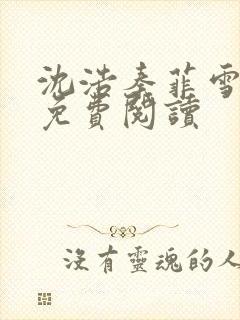 沈浩秦菲雪
免費閱讀
沒有靈魂的人